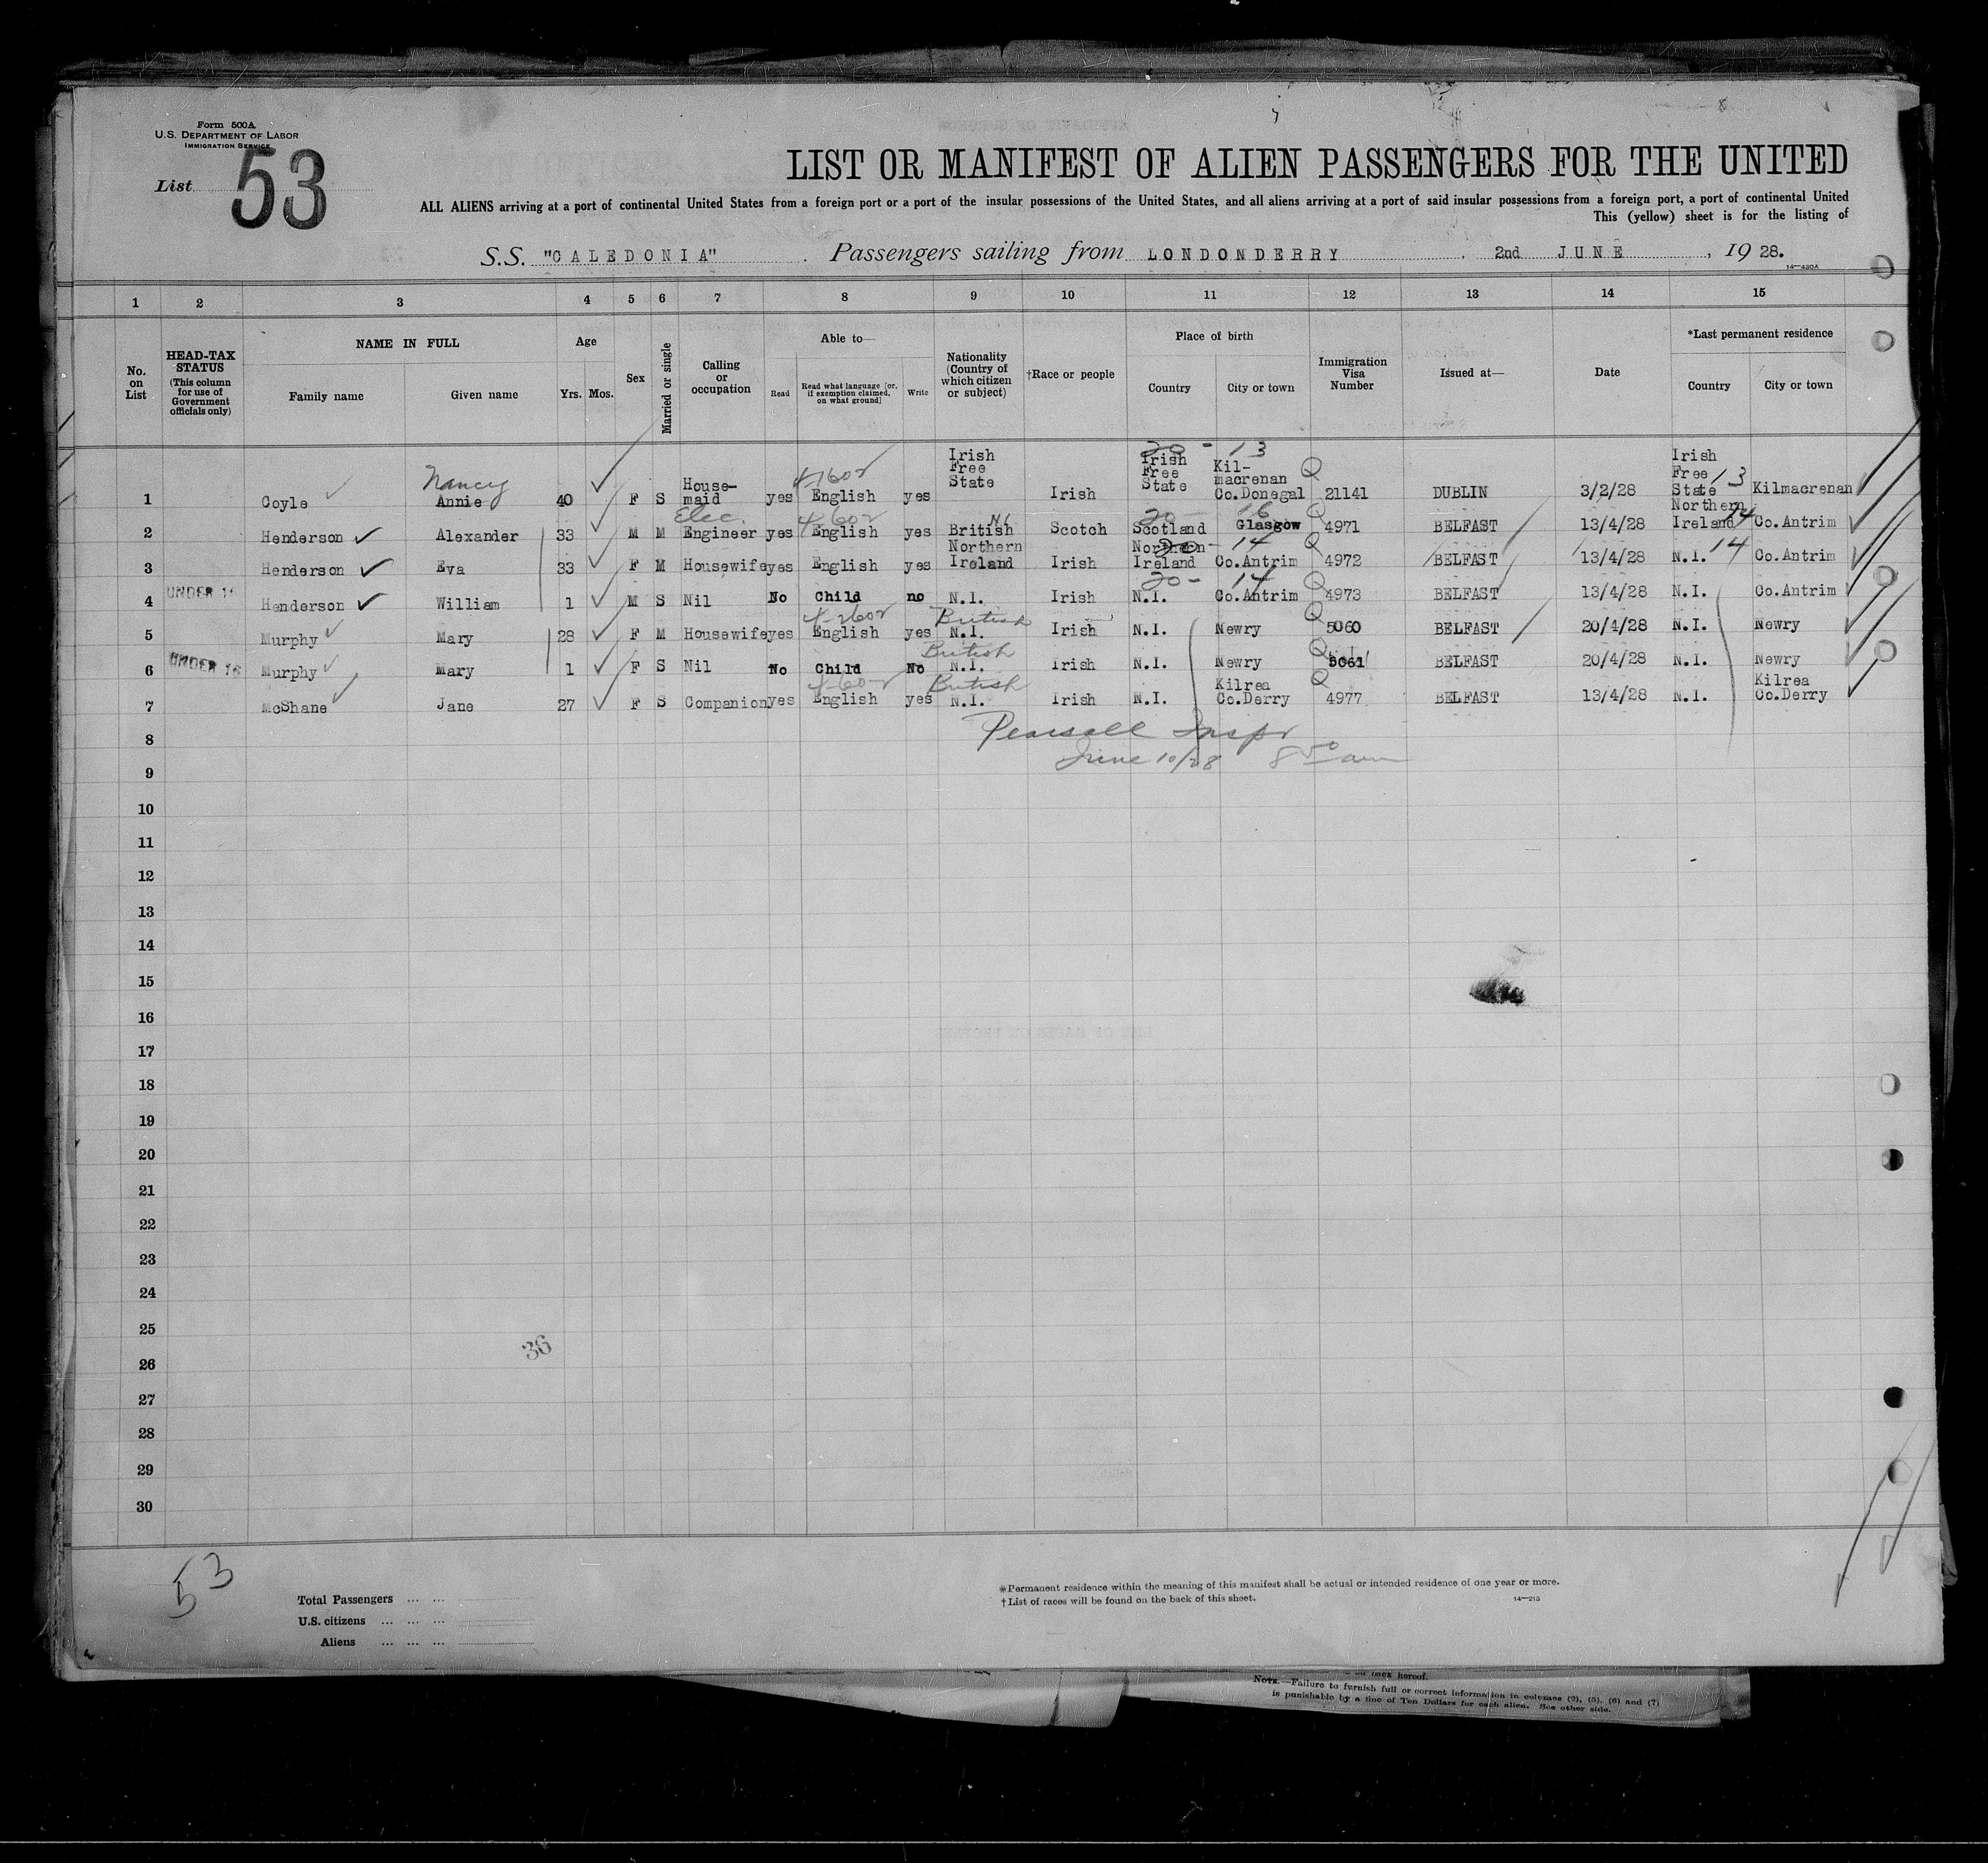 Form 500A
U.S. DEPARTMENT OF LABOR
IMMIGRATION SERVICE
List 53
LIST OR MANIFEST OF ALIEN PASSENGERS FOR THE UNITED
ALL ALIENS arriving at a port of continental United States from a foreign port or a port of the insular possessions of the United States, and all aliens arriving at a port of said insular possessions from a foreign port, a port of continental United
This (yellow) sheet is for the listing of
S.S. "CALEDONIA" Passengers sailing from LONDONDERRY, 2nd JUNE, 1928.
14—430A
1 2 3 4 5 6 7 8 9 10 11 12 13 14 15
No. on List
HEAD-TAX STATUS (This column for use of Government officials only)
NAME IN FULL
Family name Given name
Age
Yrs. Mos.
Sex
Married or single
Calling or occupation
Able to—
Read Read what language [or, if exemption claimed, on what ground] Write
Nationality (Country of which citizen or subject)
†Race or people
Place of birth
Country City or town
Immigration Visa Number
Issued at—
Date
*Last permanent residence
Country City or town
1 Coyle Nancy Annie 40 F S House-maid yes English yes Irish Free State Irish 20 - 13 Irish Free State Kil-macrenan Co.Donegal Q 21141 DUBLIN 3/2/28 Irish Free State 13 Kilmacrenan
2 Henderson Alexander 33 M M Elec. Engineer yes English yes British Scotch 20 - 16 Scotland Glasgow Q 4971 BELFAST 13/4/28 Northern Ireland 14 Co.Antrim
3 Henderson Eva 33 F M Housewife yes English yes Northern Ireland Irish Northern Ireland 20 - 14 Co.Antrim Q 4972 BELFAST 13/4/28 N.I. 14 Co.Antrim
4 UNDER 16 Henderson William 1 M S Nil No Child no N.I. Irish 20 - 14 N.I. Co.Antrim Q 4973 BELFAST 13/4/28 N.I. Co.Antrim
5 Murphy Mary 28 F M Housewife yes English yes British N.I. Irish N.I. Newry Q 5060 BELFAST 20/4/28 N.I. Newry
6 UNDER 16 Murphy Mary 1 F S Nil No Child No British N.I. Irish N.I. Newry Q 5061 BELFAST 20/4/28 N.I. Newry
7 McShane Jane 27 F S Companion yes English yes British N.I. Irish N.I. Kilrea Co.Derry Q 4977 BELFAST 13/4/28 N.I. Kilrea Co.Derry
8 Pearsall Inspr
9 June 10/28 8 50 am
10
11
12
13
14
15
16
17
18
19
20
21
22
23
24
25
36
26
27
28
29
30
53
Total Passengers ... ...
U.S. citizens ... ... ...
Aliens ... ... ...
*Permanent residence within the meaning of this manifest shall be actual or intended residence of one year or more.
†List of races will be found on the back of this sheet.
14—213
hereof.
NOTE.—Failure to furnish full or correct information in columns (2), (5), (6) and (7)
is punishable by a fine of Ten Dollars for each alien. See other side.